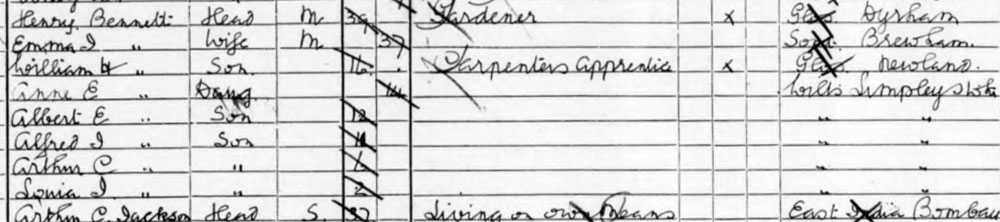 Henry Bennett Head M 39 Gardener x Glos Dyrham
Emma I " Wife M 37 Som Brewham
William H " Son 16 Carpenters Apprentice x Glos Newland
Anne E " Daug 14 Wilts Limpley Stoke
Albert E " Son 12 " "
Alfred I " Son 11 " "
Arthur C " " 6 " "
Louia I " " 2 " "
Arthur C. Jackson Head S. Living on own Means East India Bombay